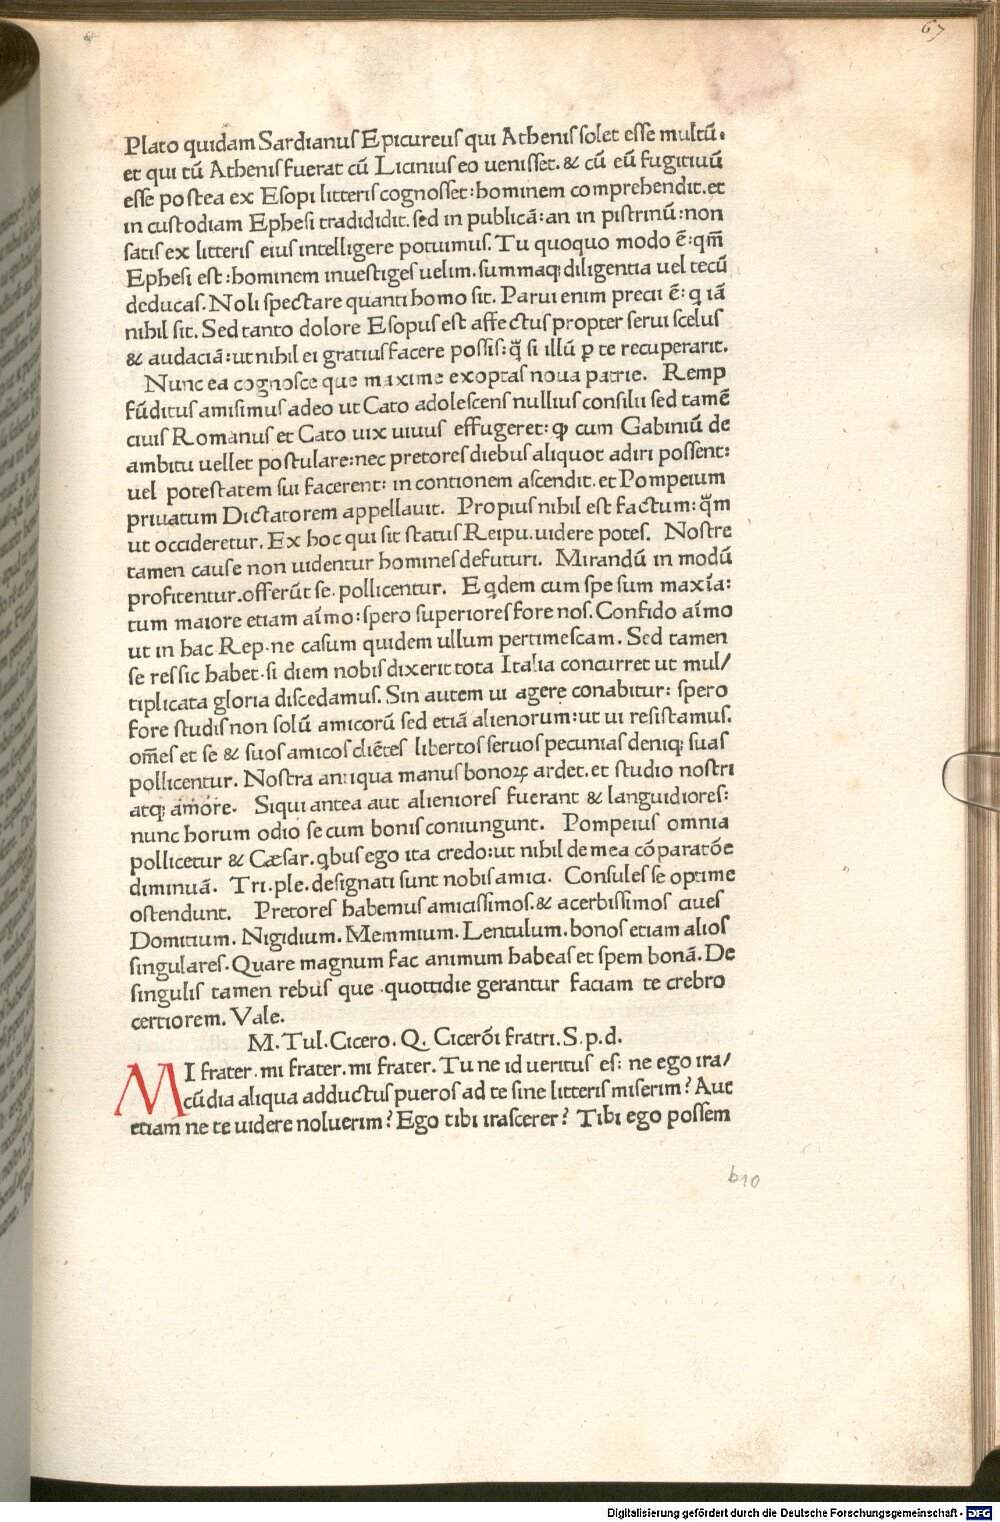 67
Plato quidam Sardianuſ Epicureuſ qui Athenıſ ſolet eſſe multū.
et qui tū Athenıſ fuerat cū Licinius eo ueniſſet. & cū eū fugitiuū
eſſe poſtea ex Eſopi litterıſ cognoſſet: hominem comprehendit. et
in cuſtodiam Epheſi tradididit. ſed in publicā: an in piſtrinū: non
ſatıſ ex litterıſ eiuſ intelligere potuimuſ. Tu quoquo modo ē: qm̄
Epheſi eſt: hominem inueſtigeſ uelim. ſummaq; diligentia uel tecū
deducaſ. Noli ſpectare quanti homo ſit. Parui enim precii ē: q iā
nihil ſit. Sed tanto dolore Eſopuſ eſt affectuſ propter ſerui ſceluſ
& audaciā: ut nihil ei gratiuſ facere poſſıſ: q̄ ſi illū ꝑ te recuperarit.
Nunc ea cognoſce que maxime exoptaſ noua patrie. Remp
fūdituſ amiſimuſ adeo ut Cato adoleſcenſ nulliuſ conſilii ſed tamē
ciuıſ Romanuſ et Cato uix uiuuſ effugeret: ꝙ cum Gabiniū de
ambitu uellet poſtulare: nec pretoreſ diebuſ aliquot adiri poſſent:
uel poteſtatem ſui facerent: in contionem aſcendit. et Pompeium
priuatum Dictatorem appellauit. Propiuſ nihil eſt factum: q̄m
ut occideretur. Ex hoc qui ſit ſtatuſ Reipu. uidere poteſ. Noſtre
tamen cauſe non uidentur homineſ defuturi. Mirandū in modū
profitentur. offerūt ſe. pollicentur. Eqdem cum ſpe ſum maxīa:
tum maiore etiam aīmo: ſpero ſuperioreſ fore noſ. Confido aīmo
ut in hac Rep. ne caſum quidem ullum pertimeſcam. Sed tamen
ſe reſ ſic habet. ſi diem nobıſ dixerit tota Italia concurret ut mul/
tiplicata gloria diſcedamuſ. Sin autem ui agere conabitur: ſpero
fore ſtudıſ non ſolū amicorū ſed etiā alienorum: ut ui reſiſtamuſ.
om̄eſ et ſe & ſuoſ amicoſ cliēteſ libertoſ ſeruoſ pecuniaſ deniq; ſuaſ
pollicentur. Noſtra antiqua manuſ bonoꝝ ardet. et ſtudio noſtri
atq; amore. Siqui antea aut alienioreſ fuerant & languidioreſ:
nunc horum odio ſe cum bonıſ coniungunt. Pompeiuſ omnia
pollicetur & Cæſar. qbuſ ego ita credo: ut nihil de mea cōparatōe
diminuā. Tri. ple. deſignati ſunt nobıſ amici. Conſuleſ ſe optime
oſtendunt. Pretoreſ habemuſ amiciſſimoſ. & acerbiſſimoſ ciueſ
Domitium. Nigidium. Memmium. Lentulum. bonoſ etiam alioſ
ſingulareſ. Quare magnum fac animum habeaſ et ſpem bonā. De
ſingulıſ tamen rebuſ que quottidie gerantur faciam te crebro
certiorem. Vale.
M. Tul. Cicero. Q. Cicerōi fratri. S. p. d.
MI frater. mi frater. mi frater. Tu ne id uerituſ eſ: ne ego ira/
cūdia aliqua adductuſ pueroſ ad te ſine litterıſ miſerim? Aut
etiam ne te uidere noluerim? Ego tibi iraſcerer? Tibi ego poſſem
b10
Digitalisierung gefördert durch die Deutsche Forschungsgemeinschaft - DFG